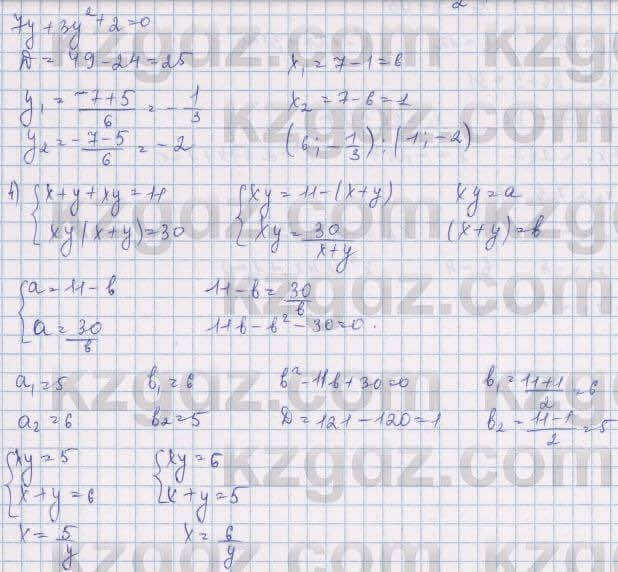 2
7y + 3y² + 2 = 0
D = 49 - 24 = 25 x₁ = 7 - 1 = 6
y₁ = (-7+5)/6 = -1/3 x₂ = 7 - 6 = 1
y₂ = (-7-5)/6 = -2 (6; -1/3); (1; -2)
4) {x+y+xy=11 {xy=11-(x+y) xy=a
{xy(x+y)=30 {xy=30/(x+y) (x+y)=b
{a=11-b 11-b=30/b
{a=30/b 11b-b²-30=0.
a₁=5 b₁=6 b²-11b+30=0 b₁=(11+1)/2=6
a₂=6 b₂=5 D=121-120=1 b₂=(11-1)/2=5
{xy=5 {xy=6
{x+y=6 {x+y=5
x=5/y x=6/y
kzgdz.com